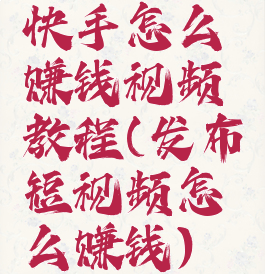 快手怎么
赚钱视频
教程(发布
短视频怎
么赚钱)